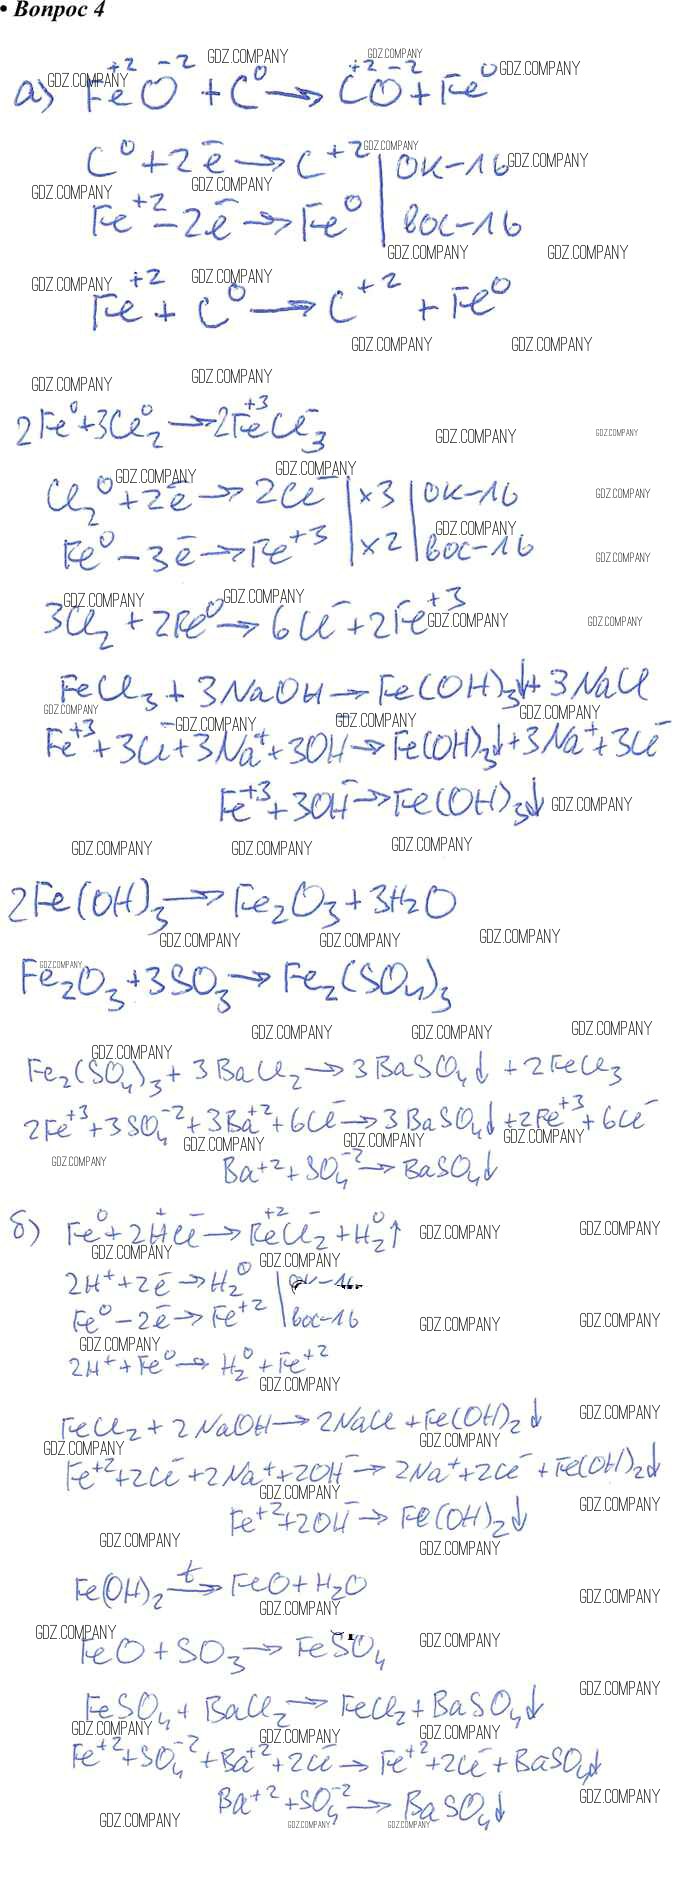 • Вопрос 4
а) Fe⁺²O⁻² + C⁰ → C⁺²O⁻² + Fe⁰
C⁰ + 2ē → C⁺² | ок-ль
Fe⁺² - 2ē → Fe⁰ | вос-ль
Fe⁺² + C⁰ → C⁺² + Fe⁰
2Fe⁰ + 3Cl₂⁰ → 2Fe⁺³Cl₃⁻
Cl₂⁰ + 2ē → 2Cl⁻ | x3 | ок-ль
Fe⁰ - 3ē → Fe⁺³ | x2 | вос-ль
3Cl₂ + 2Fe⁰ → 6Cl⁻ + 2Fe⁺³
FeCl₃ + 3NaOH → Fe(OH)₃↓ + 3NaCl
Fe⁺³ + 3Cl⁻ + 3Na⁺ + 3OH⁻ → Fe(OH)₃↓ + 3Na⁺ + 3Cl⁻
Fe⁺³ + 3OH⁻ → Fe(OH)₃↓
2Fe(OH)₃ → Fe₂O₃ + 3H₂O
Fe₂O₃ + 3SO₃ → Fe₂(SO₄)₃
Fe₂(SO₄)₃ + 3BaCl₂ → 3BaSO₄↓ + 2FeCl₃
2Fe⁺³ + 3SO₄⁻² + 3Ba⁺² + 6Cl⁻ → 3BaSO₄↓ + 2Fe⁺³ + 6Cl⁻
Ba⁺² + SO₄⁻² → BaSO₄↓
б) Fe⁰ + 2H⁺Cl⁻ → Fe⁺²Cl₂⁻ + H₂⁰↑
2H⁺ + 2ē → H₂⁰ | ок-ль
Fe⁰ - 2ē → Fe⁺² | вос-ль
2H⁺ + Fe⁰ → H₂⁰ + Fe⁺²
FeCl₂ + 2NaOH → 2NaCl + Fe(OH)₂↓
Fe⁺² + 2Cl⁻ + 2Na⁺ + 2OH⁻ → 2Na⁺ + 2Cl⁻ + Fe(OH)₂↓
Fe⁺² + 2OH⁻ → Fe(OH)₂↓
Fe(OH)₂ →ᵗ FeO + H₂O
FeO + SO₃ → FeSO₄
FeSO₄ + BaCl₂ → FeCl₂ + BaSO₄↓
Fe⁺² + SO₄⁻² + Ba⁺² + 2Cl⁻ → Fe⁺² + 2Cl⁻ + BaSO₄↓
Ba⁺² + SO₄⁻² → BaSO₄↓
GDZ.COMPANY